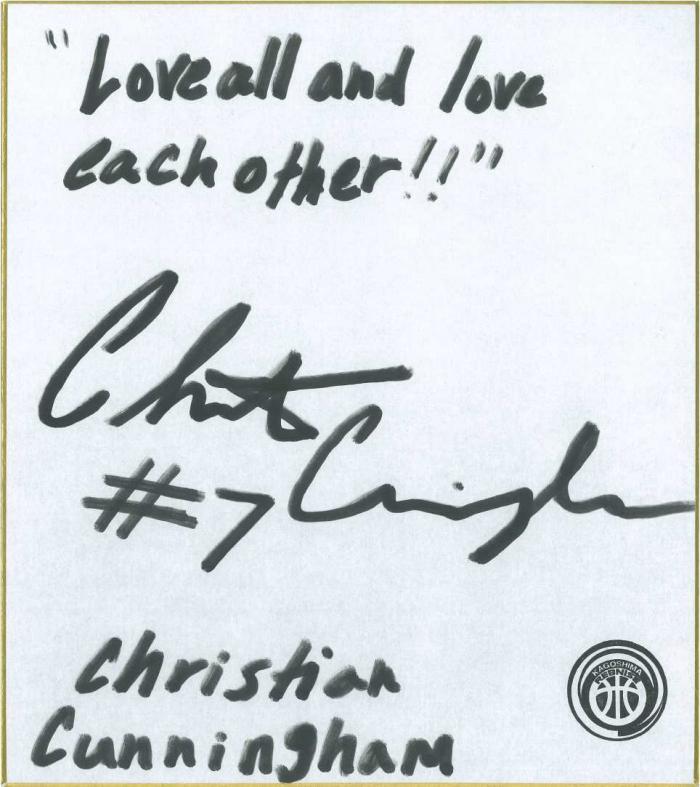 "Love all and love
each other!!"
Christian Cunningham
#7
Christian
Cunningham
KAGOSHIMA
REBNISE